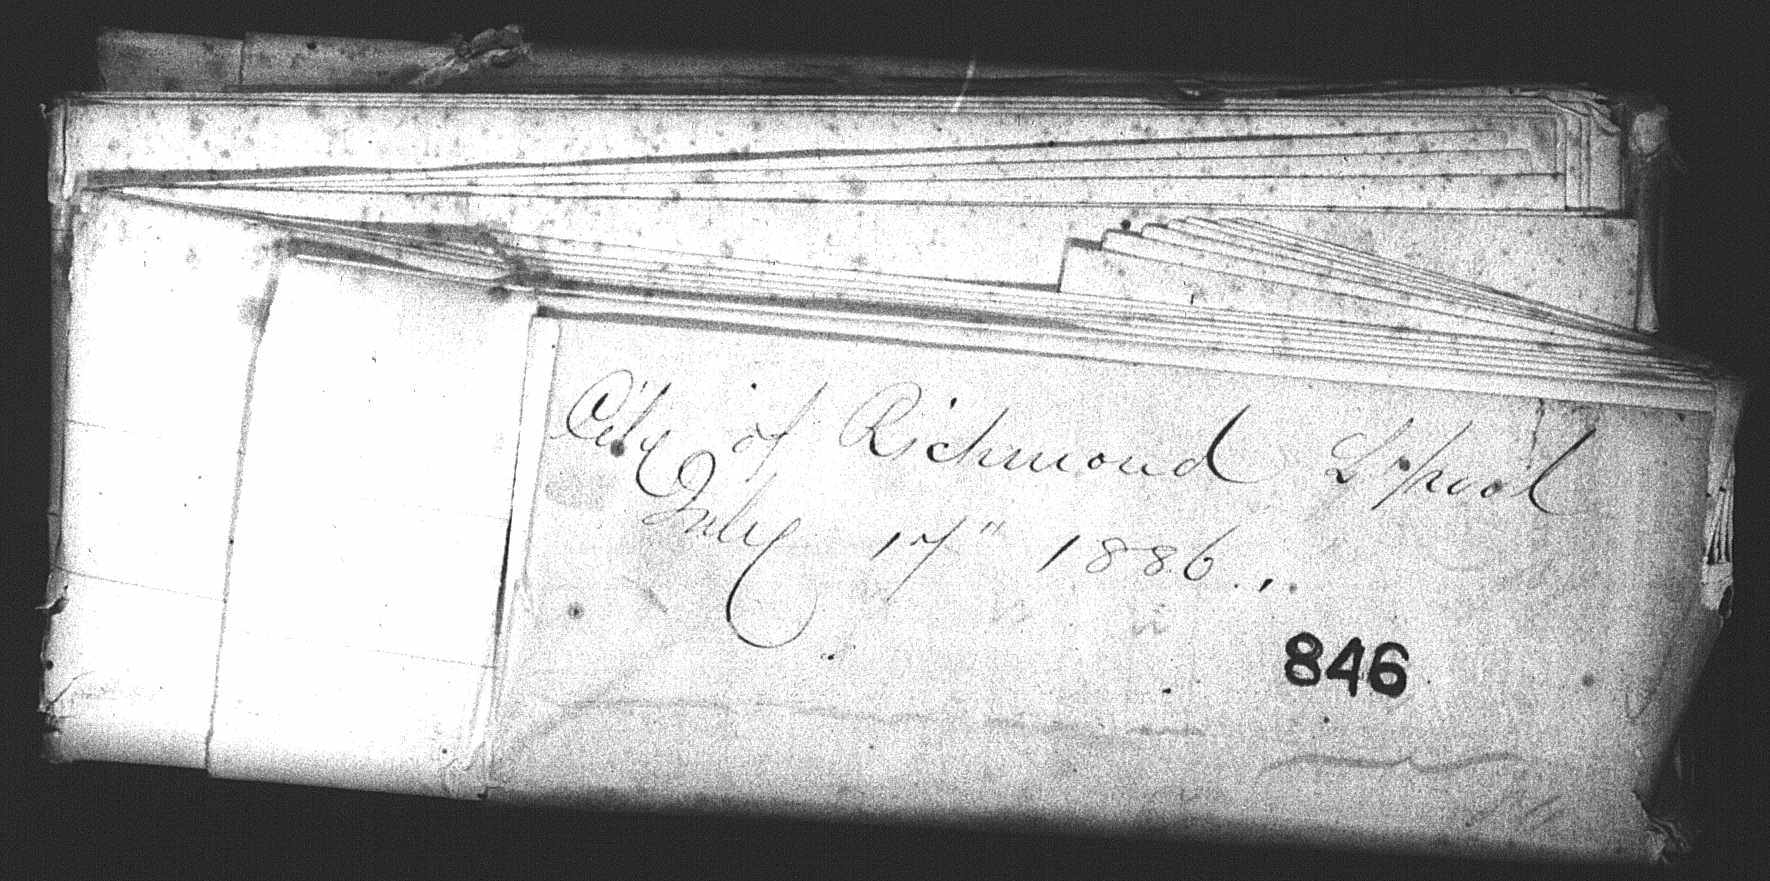 City of Richmond L'pool
July 17" 1886.,.
846